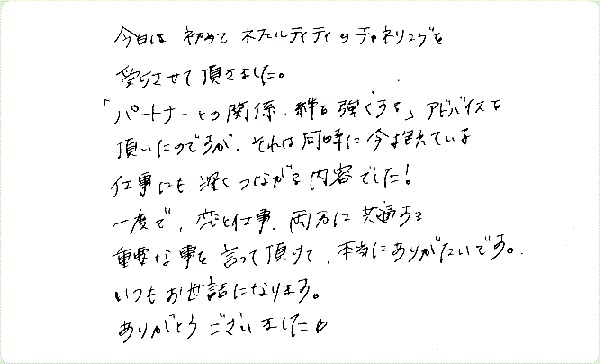 今日は初めてネフェルティティのチャネリングを
受けさせて頂きました。
「パートナーとの関係・絆を強くする」アドバイスを
頂いたのですが、それは同時に今抱えている
仕事にも深くつながる内容でした！
一度で、恋と仕事、両方に共通する
重要な事を言って頂けて、本当にありがたいです。
いつもお世話になります。
ありがとうございました